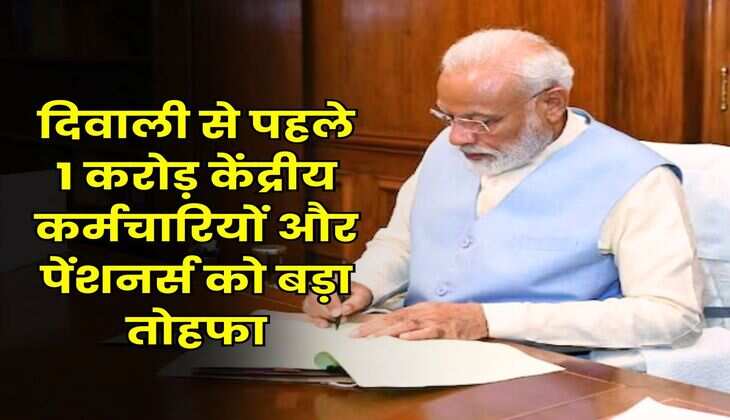 दिवाली से पहले
1 करोड़ केंद्रीय
कर्मचारियों और
पेंशनर्स को बड़ा
तोहफा